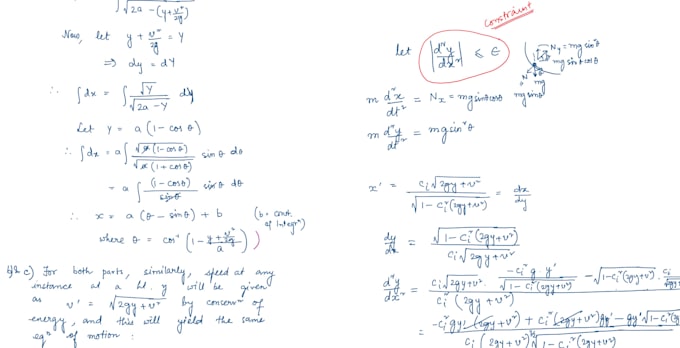 ∫√(2a − (y + v²/2g))
Now, let y + v²/2g = Y
⇒ dy = dY
∴ ∫dx = ∫ √Y/√(2a − Y) dY
Let Y = a(1 − cosθ)
∴ ∫dx = a∫ √a(1 − cosθ)/√a(1 + cosθ) sinθ dθ
= a∫ (1 − cosθ)/sinθ sinθ dθ
∴ x = a(θ − sinθ) + b (b = const. of Integrⁿ)
where θ = cos⁻¹(1 − (y + v²/2g)/a)
c) For both parts, similarly, speed at any
instance at a ht. y will be given
as v' = √(2gy + v²) by conservⁿ of
energy, and this will yield the same
eqⁿ of motion :
Constraint
let |d²y/dx²| ≤ ϵ
N_y = mg sin²θ
mg sinθ cosθ
N
mg
mg sinθ
m d²x/dt² = N_x = mg sinθ cosθ
m d²y/dt² = mg sin²θ
x' = c₁√(2gy + v²)/√(1 − c₁²(2gy + v²)) = dx/dy
dy/dx = √(1 − c₁²(2gy + v²))/c₁√(2gy + v²)
d²y/dx² = c₁√(2gy + v²) · −c₁² g · y'/√(1 − c₁²(2gy + v²)) − √(1 − c₁²(2gy + v²)) ·
c₁²(2gy + v²)
= −c₁² gy' (2gy + v²) + c₁² (2gy + v²) gy' − gy'